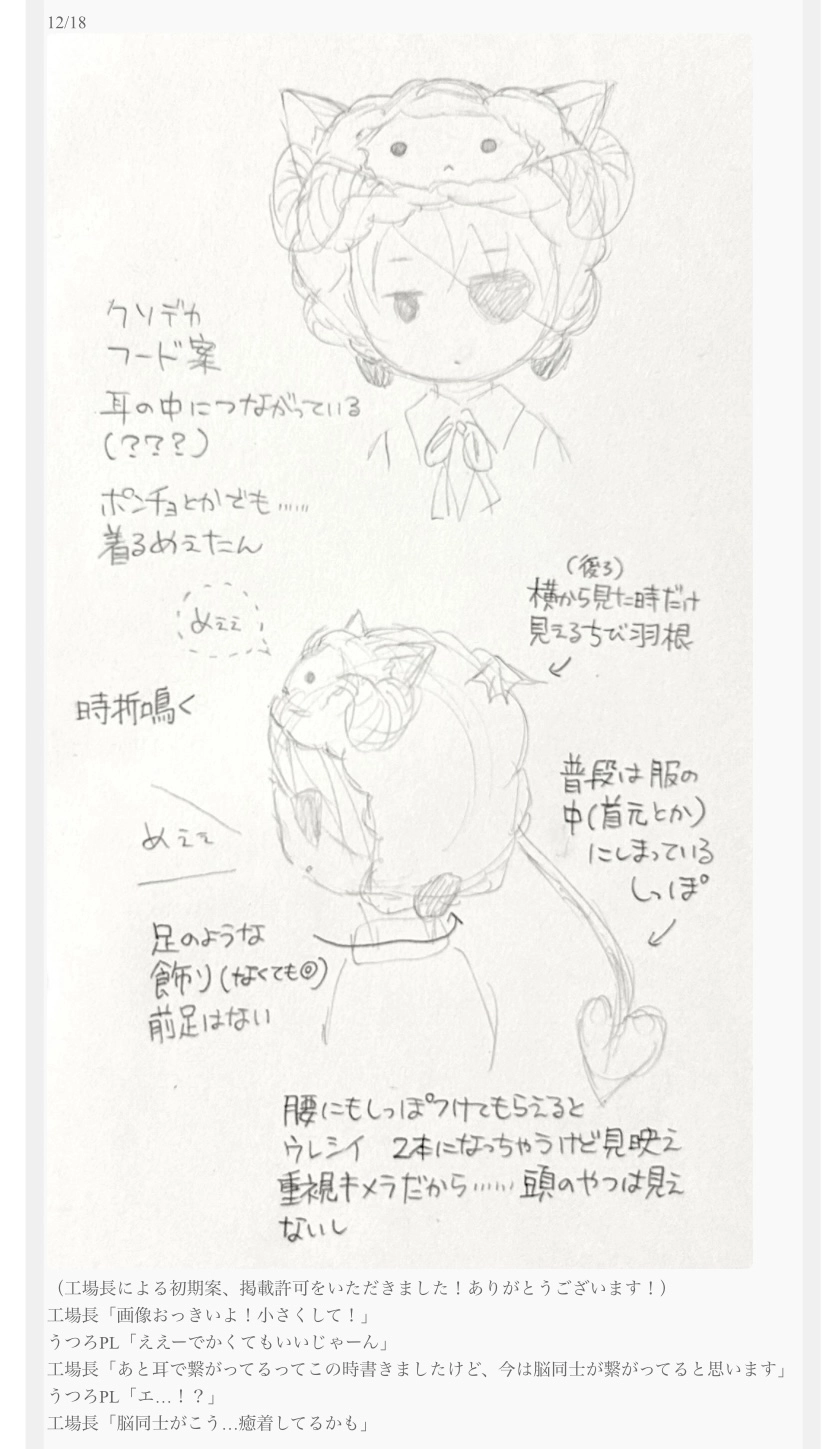 12/18
クソデカ
フード案
耳の中につながっている
(???)
ポンチョとかでも……
着るめえたん
(後ろ)
横から見た時だけ
見えるちび羽根
めぇぇ
時折鳴く
普段は服の
中(首元とか)
にしまっている
しっぽ
めぇぇ
足のような
飾り(なくても◎)
前足はない
腰にもしっぽつけてもらえると
ウレシイ 2本になっちゃうけど見映え
重視キメラだから……頭のやつは見え
ないし
（工場長による初期案、掲載許可をいただきました！ありがとうございます！）
工場長「画像おっきいよ！小さくして！」
うつろPL「ええーでかくてもいいじゃーん」
工場長「あと耳で繋がってるってこの時書きましたけど、今は脳同士が繋がってると思います」
うつろPL「エ…！？」
工場長「脳同士がこう…癒着してるかも」